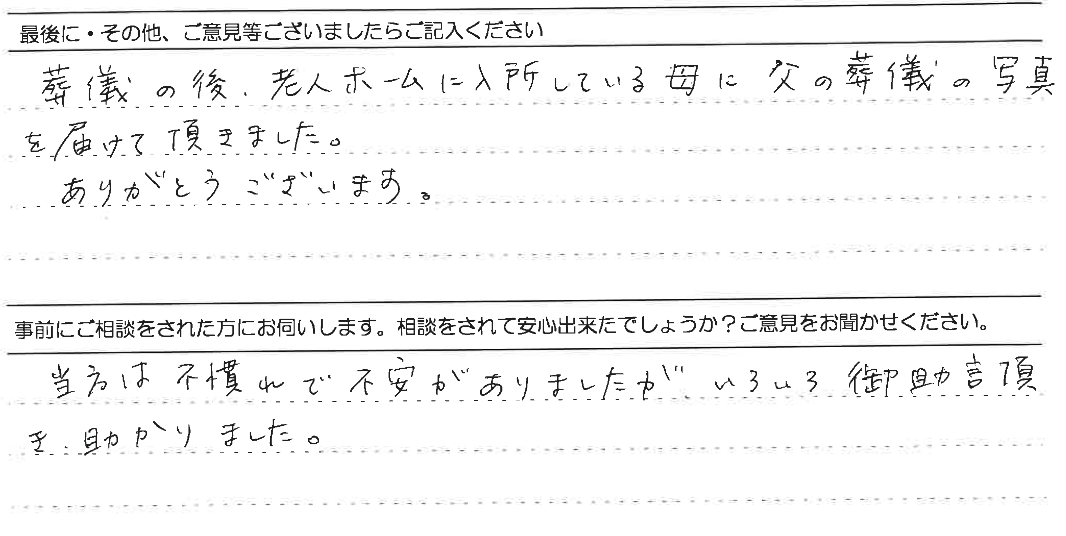 最後に・その他、ご意見等ございましたらご記入ください
葬儀の後、老人ホームに入所している母に父の葬儀の写真
を届けて頂きました。
ありがとうございます。
事前にご相談をされた方にお伺いします。相談をされて安心出来たでしょうか？ご意見をお聞かせください。
当方は不慣れで不安がありましたが、いろいろ御助言頂
き、助かりました。